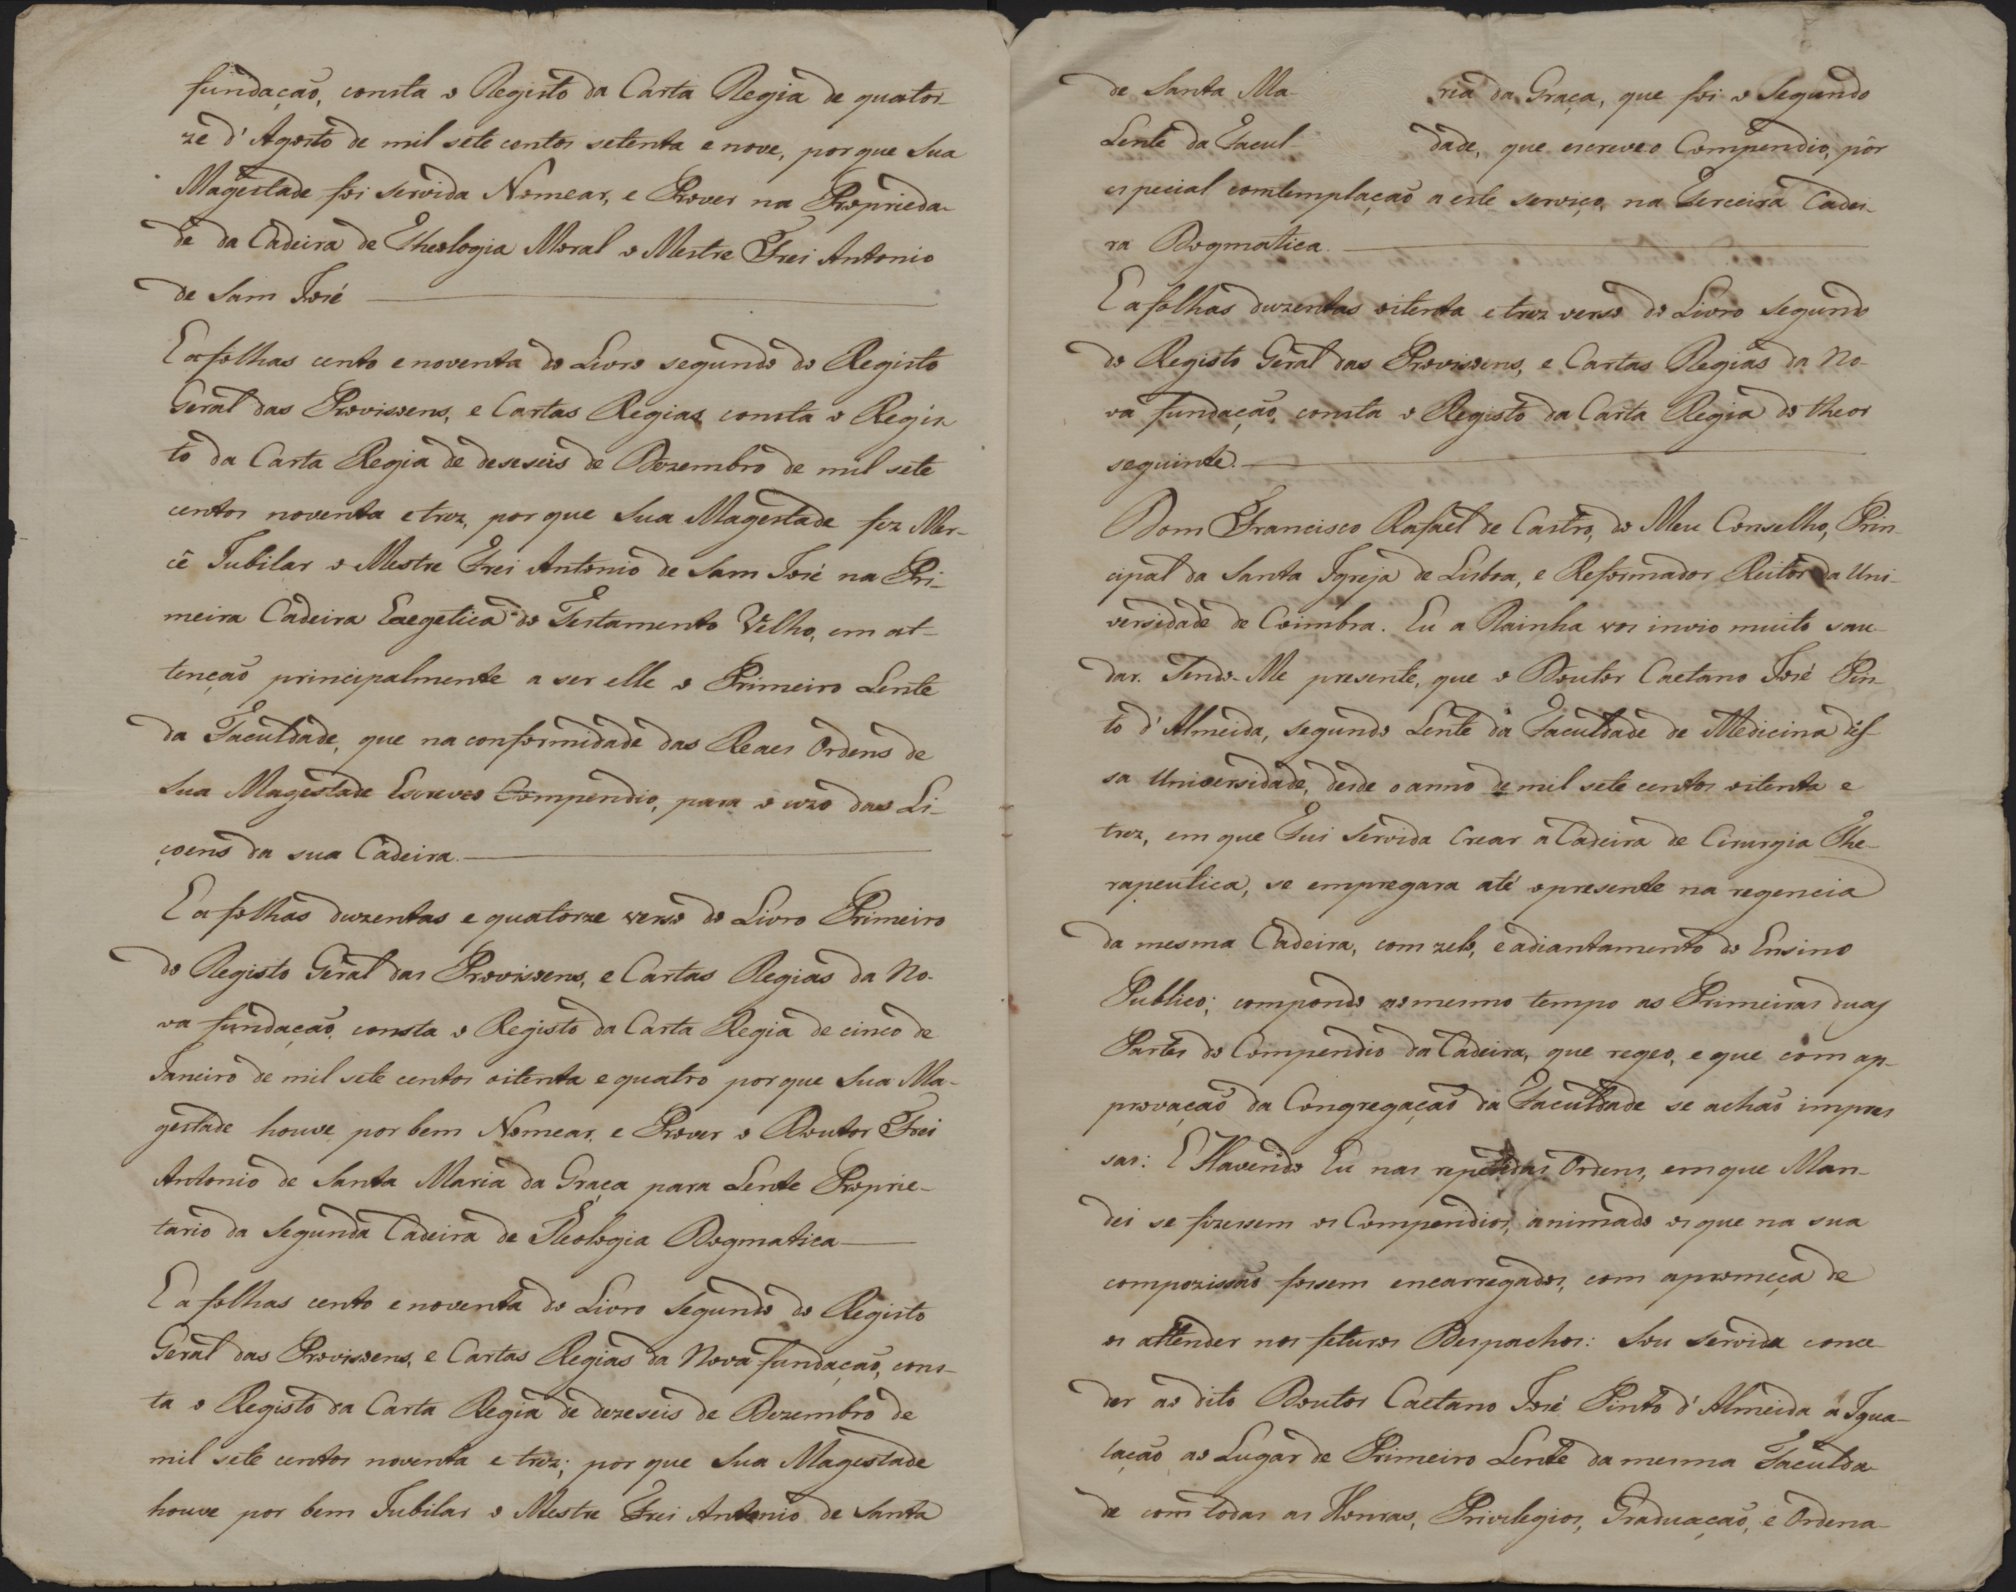 fundação, consta o Registo da Carta Regia de quator
ze d'Agosto de mil sete centos setenta e nove, por que Sua
Magestade foi servida Nomear, e Prover na Proprieda-
de da Cadeira de Theologia Moral o Mestre Frei Antonio
de Sam José
E a folhas cento e noventa do Livro segundo do Registo
Geral das Provisoens, e Cartas Regias consta o Regis
to da Carta Regia de deseseis de Dezembro de mil sete
centos noventa e trez, por que Sua Magestade fez Mer-
cê Jubilar o Mestre Frei Antonio de Sam José na Pri-
meira Cadeira Exegetica do Testamento Velho, em at-
tenção principalmente a ser elle o Primeiro Lente
da Faculdade, que na conformidade das Reaes Ordens de
Sua Magestade Escreveo Compendio, para o uzo das Li-
çoens da sua Cadeira.
E a folhas duzentas e quatorze verso do Livro Primeiro
do Registo Geral das Provisoens, e Cartas Regias da No-
va fundação, consta o Registo da Carta Regia de cinco de
Janeiro de mil sete centos oitenta e quatro por que Sua Ma-
gestade houve por bem Nomear, e Prover o Doutor Frei
Antonio de Santa Maria da Graça para Lente Proprie-
tario da Segunda Cadeira de Theologia Dogmatica
E a folhas cento e noventa do Livro Segundo do Registo
Geral das Provisoens, e Cartas Regias da Nova fundação, cons-
ta o Registo da Carta Regia de dezeseis de Dezembro de
mil sete centos noventa e trez; por que Sua Magestade
houve por bem Jubilar o Mestre Frei Antonio de Santa
de Santa Ma- ria da Graça, que foi o Segundo
Lente da Facul- dade, que escreveo Compendio, por
especial comtemplação a este serviço, na Terceira Cadei-
ra Dogmatica.
E a folhas duzentas oitenta e trez verso do Livro segundo
do Registo Geral das Provisoens, e Cartas Regias da No-
va fundação, consta o Registo da Carta Regia do theor
seguinte.
Dom Francisco Rafael de Castro, do Meu Conselho, Prin-
cipal da Santa Igreja de Lisboa, e Reformador Reitor da Uni-
versidade de Coimbra. Eu a Rainha vos invio muito sau-
dar. Tendo-Me presente, que o Doutor Caetano José Pin-
to d'Almeida, segundo Lente da Faculdade de Medicina dés-
sa Universidade, desde o anno de mil sete centos oitenta e
trez, em que Fui Servida Crear a Cadeira de Cirurgia The-
rapeutica, se empregara até o presente na regencia
da mesma Cadeira, com zelo, e adiantamento do Ensino
Publico; compondo ao mesmo tempo as Primeiras duas
Partes do Compendio da Cadeira, que regeo, e que com ap-
provação da Congregação da Faculdade se achão impres
sas: E Havendo Eu nas repetidas Ordens, em que Man-
dei se fizessem os Compendios, animado os que na sua
compozissão fossem encarregados, com a promeça de
os attender nos feturos Despachos: Sou Servida conce-
der ao dito Doutor Caetano José Pinto d'Almeida a Igua-
lação ao Lugar de Primeiro Lente da mesma Faculda-
de com todas as Honras, Privilegios, Graduação, e Ordena-